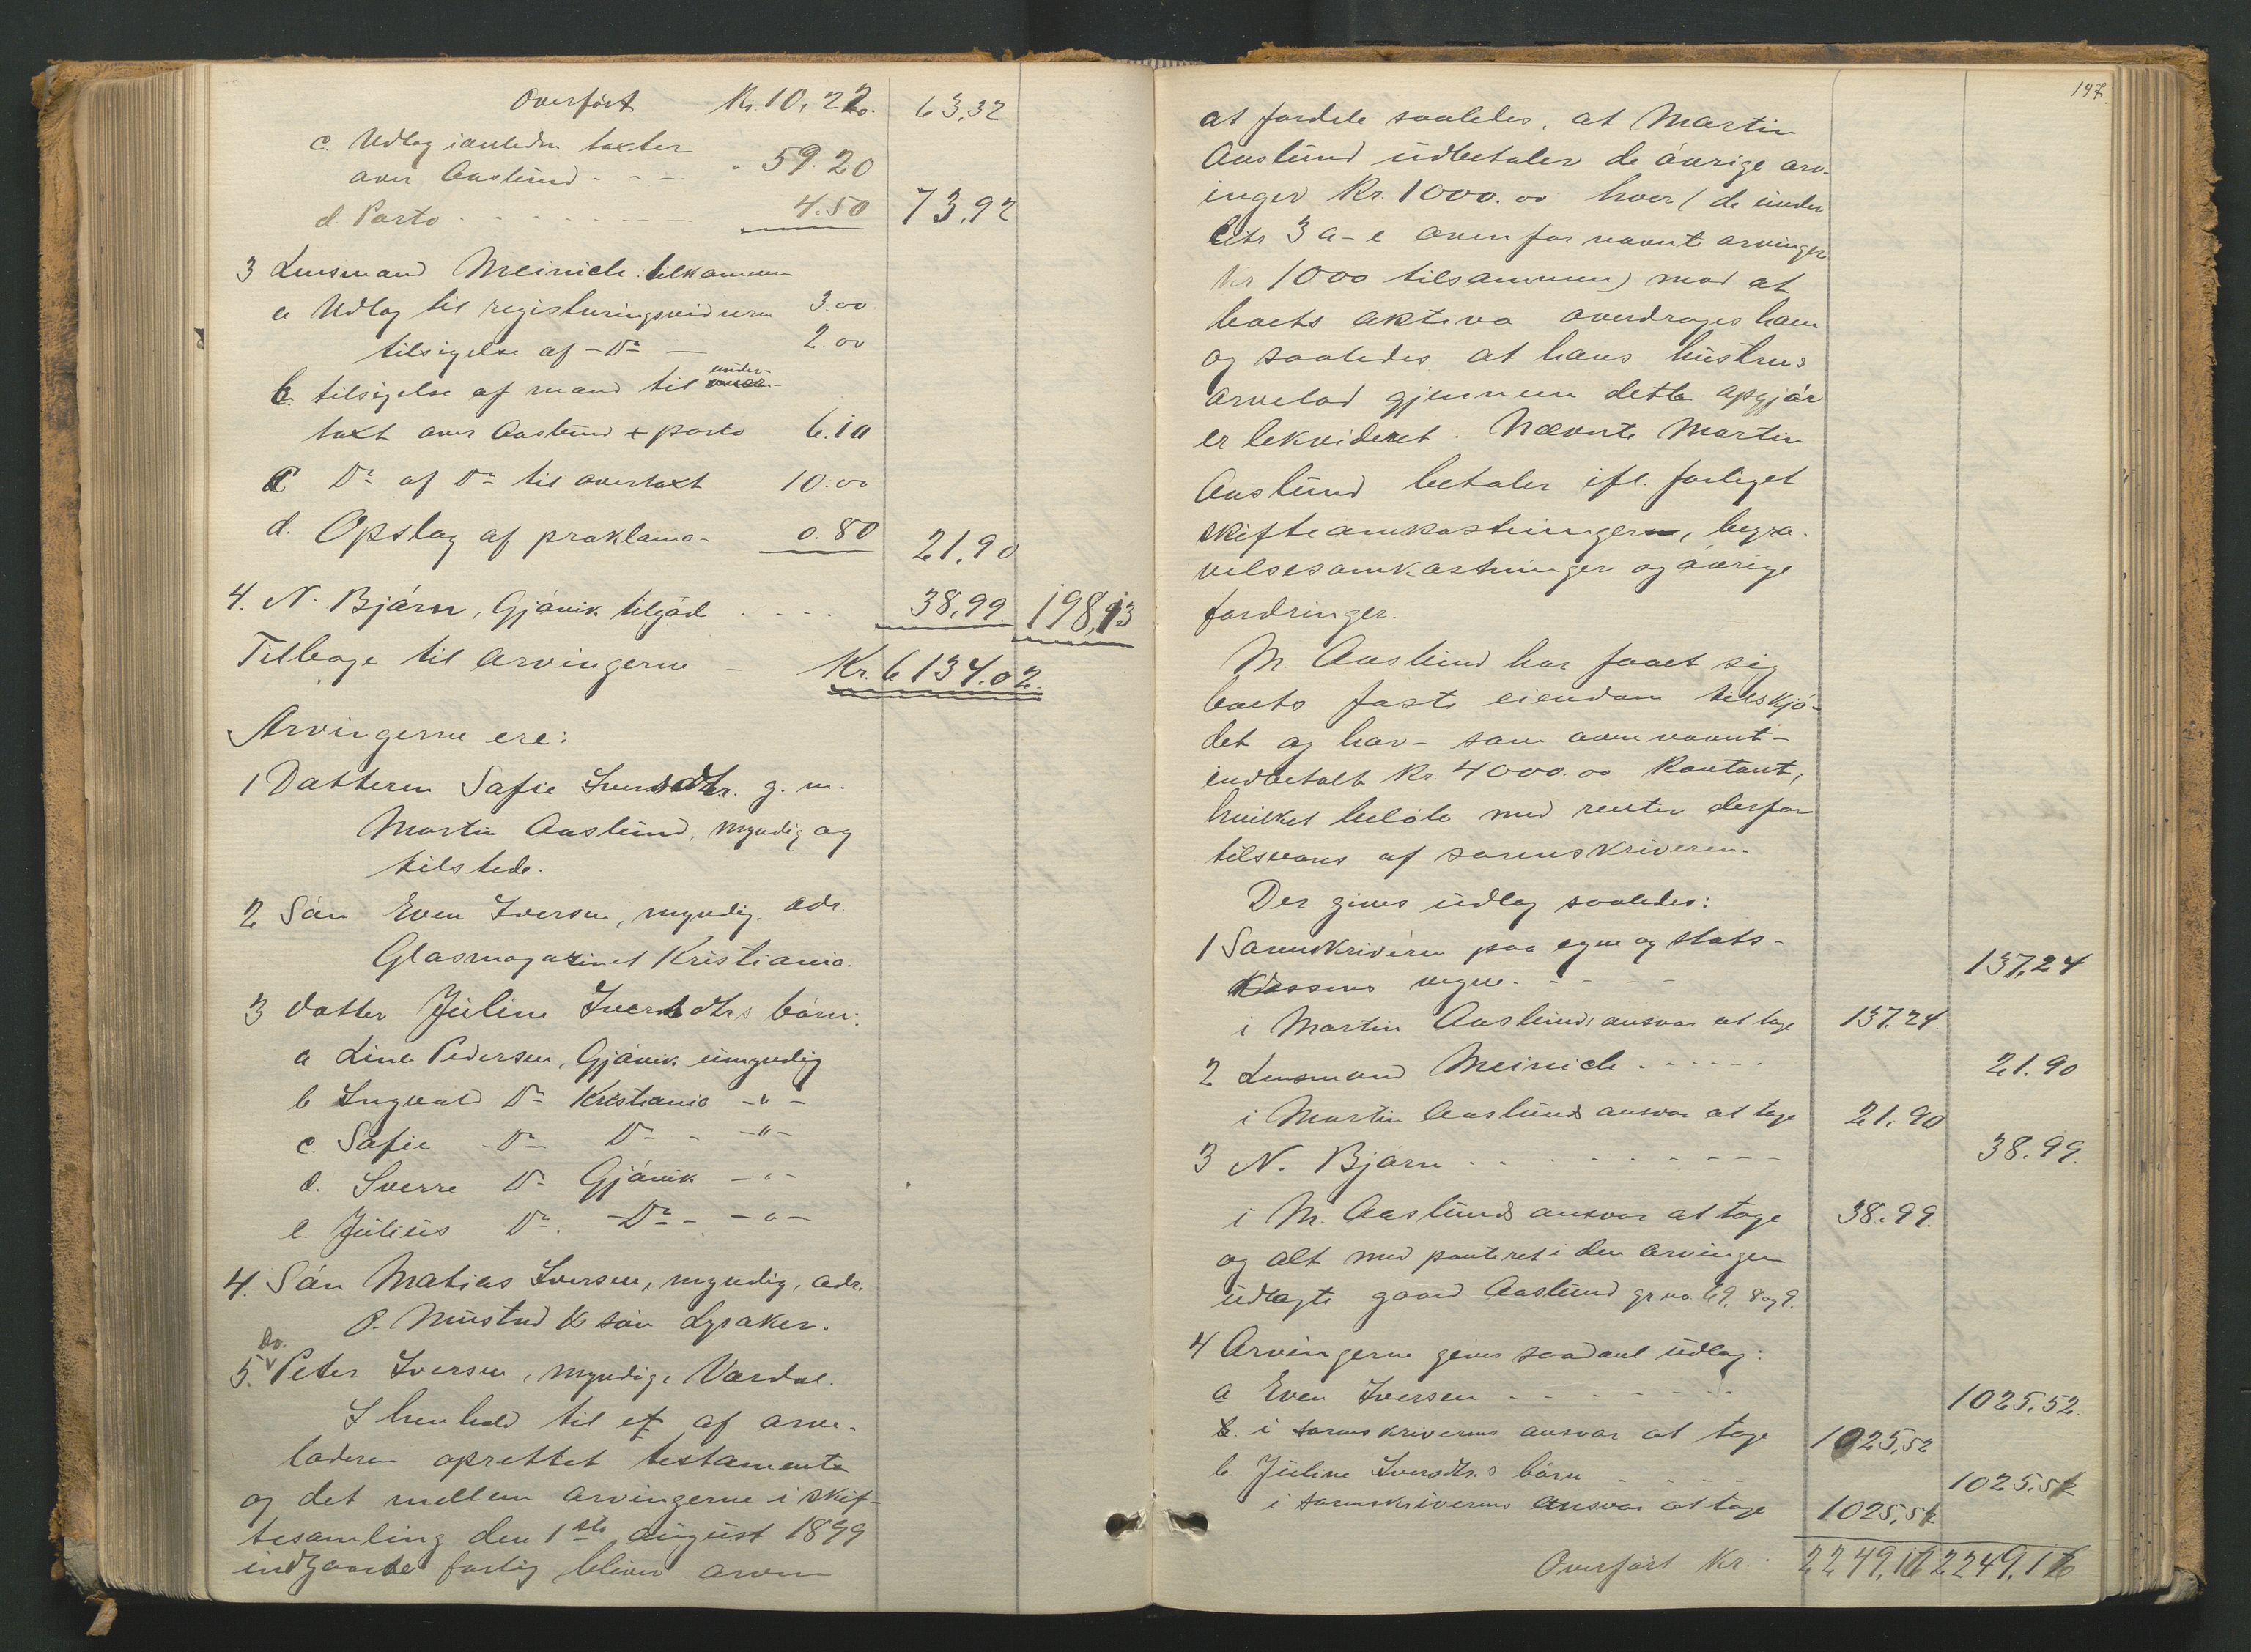 Overført Kr. 10.22 63,32
c. Udlag i anledn taxter
over Aaslund - - - " 59.20
d. Porto - - - - - 4.50 73,92
3 Lensmand Meinich tilkommer
a Udlag til registreringsvidnern 3.00
tilsigelse af - Do - 2.00
b. tilsigelse af mænd til under-
taxt over Aaslund + porto 6.10
c Do af Do til overtaxt 10.00
d. Opslag af proklama - 0.80 21,90
4. N. Bjørn, Gjøvik tilgod . . . . 38,99 198,13
Tilbage til Arvingerne - Kr. 6134.02
Arvingerne ere:
1 Datteren Safie Iversdtr. g. m.
Martin Aaslund, myndig og
tilstede.
2 Søn Even Iversen, myndig, adr.
Glasmagazinet Kristiania.
3 datter Juline Iversdtrs børn:
a Lina Pedersen, Gjøvik umyndig
b Ingvald Do Kristiania - " -
c. Safie - Do Do - - " -
d. Sverre Do Gjøvik - " -
e. Julius Do. - Do - - " -
4. Søn Matias Iversen, myndig, adr.
O. Mustad & søn Lysaker.
5. do. Peter Iversen, myndig, Vardal.
I henhold til et af arve-
laderen oprettet testamente
og det mellem arvingerne i skif-
tesamling den 1ste august 1899
indgaaede forlig bliver arven
147.
at fordele saaledes, at Martin
Aaslund udbetaler de øvrige arv-
inger Kr. 1000.00 hver (de under
litr 3 a-e ovenfor nævnte arvinger
kr 1000 tilsammen) mod at
boets aktiva overdrages ham
og saaledes at hans hustrus
arvelod gjennem dette opgjør
er likvideret. Nævnte Martin
Aaslund betaler ifl. forliget
skifteomkostninger, begra-
velsesomkostninger og øvrige
fordringer.
M. Aaslund har faaet sig
boets faste eiendom tilskjø-
det og har - som ovennævnt -
indbetalt Kr. 4000.00 kontant,
hvilket beløb med renter derfor
tilsvares af sorenskriveren.
Der gives udlæg saaledes:
1 Sorenskriveren paa egne og stats-
kassens vegne - - - - - 137,24
i Martin Aaslunds ansvar at tage 137.24
2 Lensmand Meinich - - - - - 21.90
i Martin Aaslunds ansvar at tage 21.90
3 N. Bjørn - - - - - - - - 38.99.
i M. Aaslunds ansvar at tage 38.99.
og alt med panteret i den arvingen
udlagte gaard Aaslund gr no 69, 8 og 9.
4 Arvingerne gives saadant udlæg:
a Even Iversen - - - - - - 1025.52.
i sorenskriverens ansvar at tage 1025,52
b. Juline Iversdtr.s børn - - - - 1025.52
i sorenskriverens ansvar at tage 1025,52
Overført Kr. 2249,17 2249,17